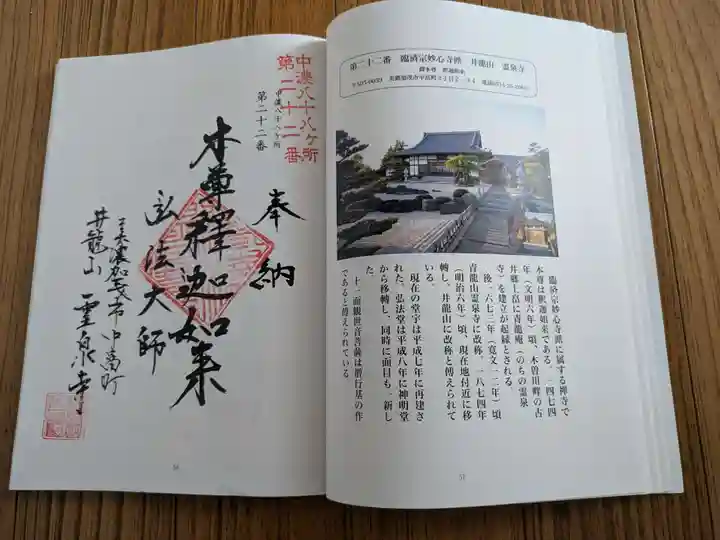 中濃八十八ヶ所
第二十二番
中濃八十八ヶ所
第二十二番
奉納
本尊釋迦如来
弘法大師
美濃加茂市中富町
井龍山 霊泉寺
50
第二十二番 臨済宗妙心寺派 井龍山 霊泉寺
御本尊 釈迦如来
臨済宗妙心寺派に属する禅寺で
本尊は釈迦如来である。一四七四
年(文明六年)頃、木曽川畔の古
井郷上富に青龍庵(のちの霊泉
寺)を建立が起縁とされる。
後一六七三年(寛文一二年)頃
青龍山霊泉寺に改称、一八七四年
(明治六年)頃、現在地付近に移
轉し、井龍山に改称と傳えられて
いる。
現在の堂宇は平成七年に再建さ
れた。弘法堂は平成八年に神明堂
から移轉し、同時に面目も一新し
た。
十一面観世音菩薩は僧行基の作
であると傳えられている
51